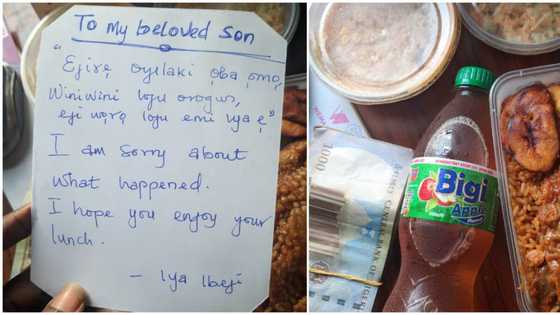 To my beloved son
"Ejirẹ oyelaki ọba ọmọ,
Winiwini loju orogun,
eji wọrọ loju emi iya ẹ"
I am sorry about
what happened.
I hope you enjoy your
lunch.
- Iya Ibeji
1000
CENTRAL BANK OF
Bigi
Apple